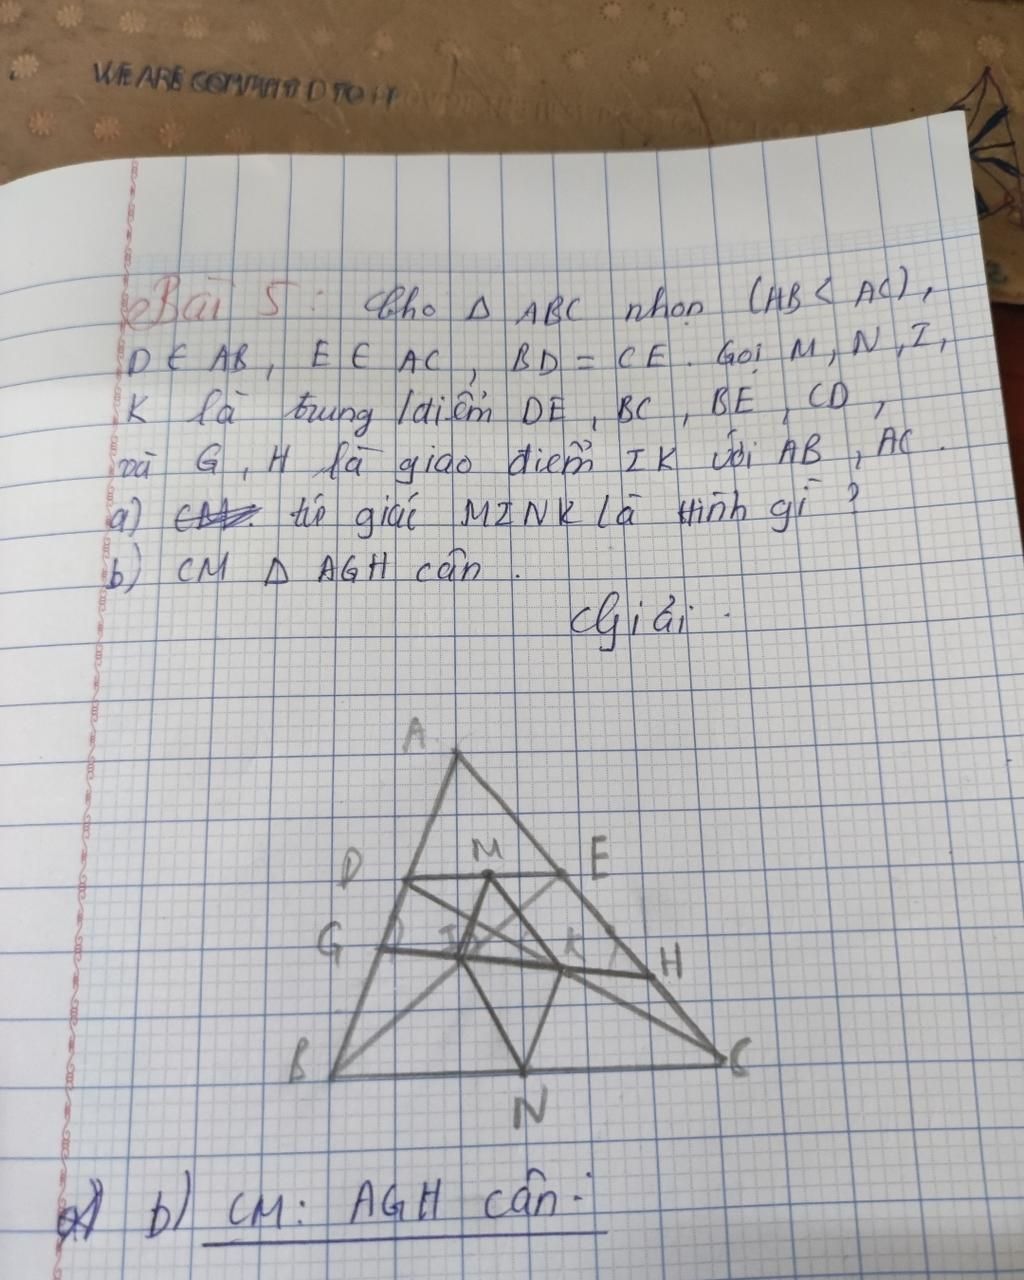 WE ARE COMMITTED TO IT
Bài 5: Cho Δ ABC nhọn (AB < AC),
D ∈ AB, E ∈ AC, BD = CE. Gọi M, N, I,
K là trung điểm DE, BC, BE, CD,
và G, H là giao điểm IK với AB, AC.
a) tứ giác MINK là Hình gì?
b) CM Δ AGH cân.
Giải.
A
D M E
G I K H
B C
N
b) CM: AGH cân.